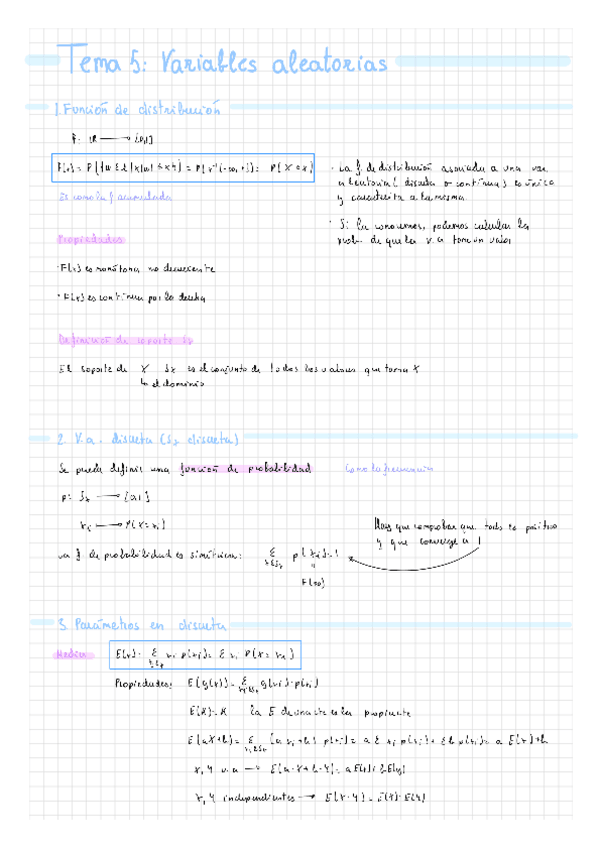 Tema 5: Variables aleatorias
1. Función de distribución
F: ℝ → [0,1]
F(x) = P({ω ∈ Ω | X(ω) ≤ x}) = P(X⁻¹(-∞, x]) = P(X ≤ x)
Es como la f acumulada
· La f de distribución asociada a una var.
aleatoria (discreta o continua) es única
y caracteriza a la misma.
· Si la conocemos, podemos calcular la
prob. de que la v.a tome un valor
Propiedades
· F(x) es monótona no decreciente
· F(x) es continua por la derecha
Definición de soporte Sx
El soporte de X Sx es el conjunto de todos los valores que toma X
↳ el dominio
2. V.a. discreta (Sx discreta)
Se puede definir una función de probabilidad Como la frecuencia
p: Sx → [0,1]
xi → P(X=xi)
Hay que comprobar que todo es positivo
y que converge a 1
La f de probabilidad es simétrica: Σ p(xi)=1
xi∈Sx
F(∞)
3. Parámetros en discreta
Media E(x) = Σ xi p(xi) = Σ xi P(X = xi)
xi∈Sx
Propiedades: E(g(x)) = Σ g(xi)·p(xi)
xi∈Sx
E(K) = K la E de una cte es la propia cte
E(aX+b) = Σ (a xi + b) p(xi) = a Σ xi p(xi) + Σ b p(xi) = a E(x) + b
xi∈Sx
X, Y v.a → E(a·X + b·Y) = a E(x) + b·E(y)
X, Y independientes → E(X·Y) = E(X)·E(Y)